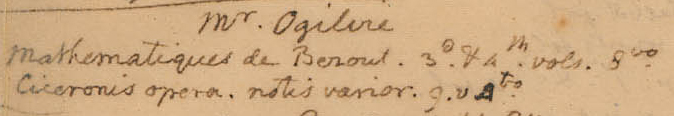 Mr. Ogilvie
Mathematiques de Bezout. 3o. & 4m. vols. 8vo.
Ciceronis opera. notis varior. 9. v 4to